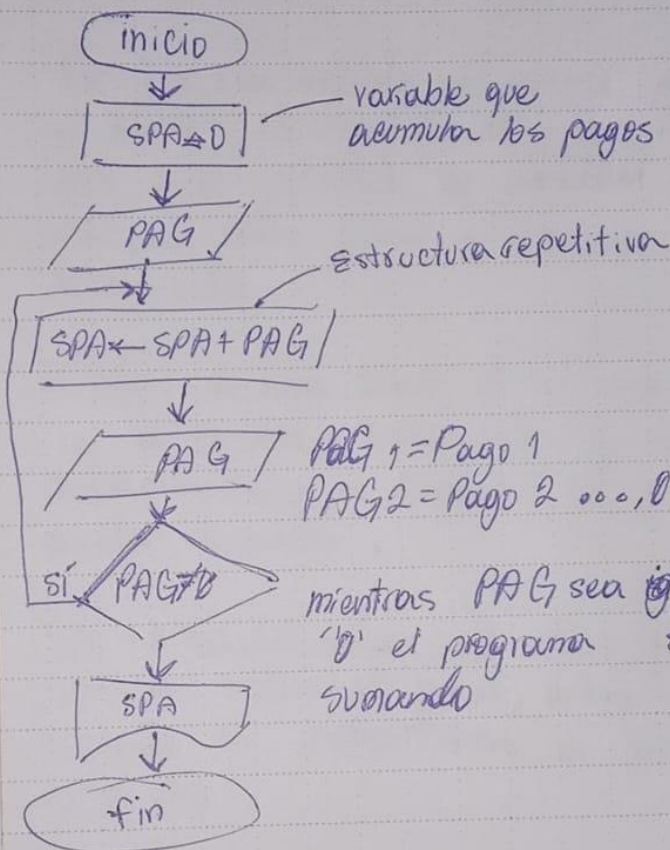 inicio
SPA←0
variable que
acumula los pagos
PAG
Estructura repetitiva
SPA← SPA+PAG
PAG
PAG 1 = Pago 1
PAG2 = Pago 2 ..., 0
Sí
PAG≠0
mientras PAG sea
'0' el programa
sumando
SPA
fin